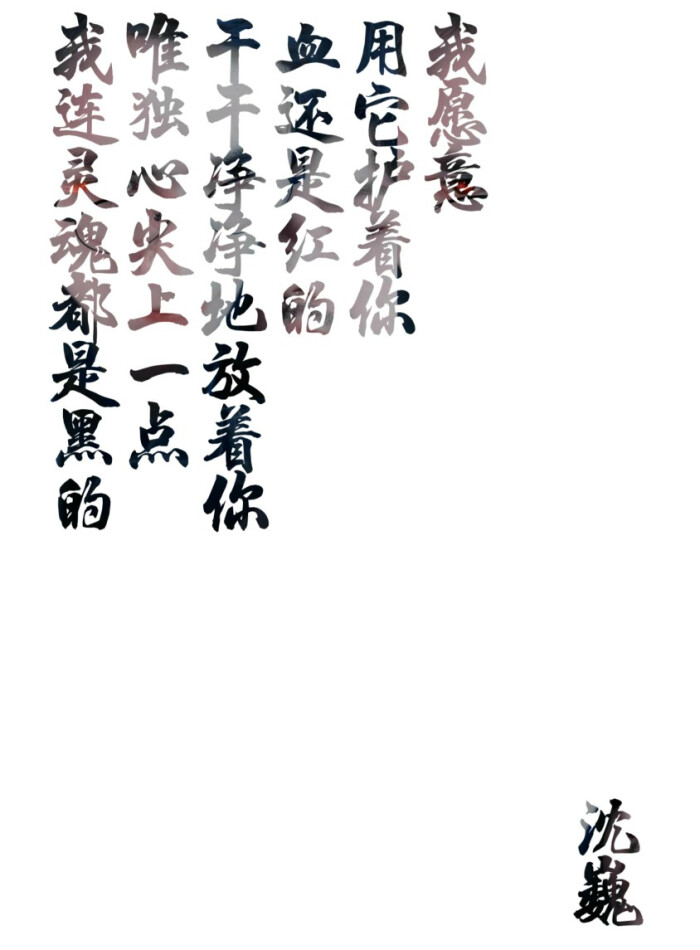 我连灵魂都是黑的
唯独心尖上一点
干干净净地放着你
血还是红的
用它护着你
我愿意
沈巍